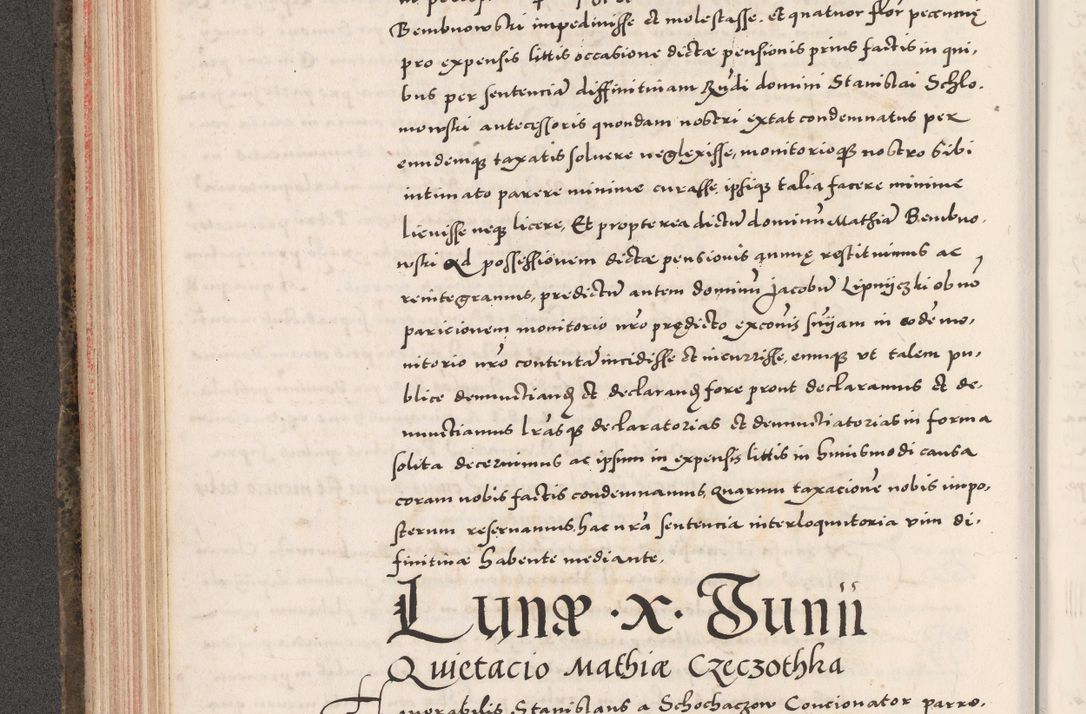 Bembnowski impedivisse et molestasse, et quatuor flor pecunię
pro expensis littis occasione dictæ pensionis prius factis in qui,
bus per sentenciā diffinitivam Rndi domini Stanislai Schlo,
mowski antecessoris quondam nostri extat condemnatus per
eundemqꝫ taxatis solvere neglexisse, monitorioqꝫ nostro sibi
intimato parere minime curasse, ipsiqꝫ talia facere minime
licuisse neqꝫ licere, Et propterea dictū dominū Mathiā Bembno,
wski ad possessionem dictæ pensionis annuę restituimus ac
reintegramus, predictū autem dominū Jacobū Lipniczki ob nō
paricionem monitorio nro prędicto excōis snīam in eodē mo,
nitorio nro contentā incidisse et incurrisse, eumqꝫ ut talem pu,
blice denunctiandꝫ et declarandꝫ fore prout declaramus et de,
nunctiamus lrasqꝫ declaratorias et denunctiatorias in forma
solita decernimus ac ipsum in expensis littis in huiusmodi causa
coram nobis factis condemnamus, quarum taxacionē nobis impo,
sterum reservamus, hac nrā sentencia interloquutoria vim di,
finitivæ habente mediante,
Lunæ ·x· Junii
Quietacio Mathiæ Czeczothka
Honorabilis Stanislaus a Schochaczow Concionator parro,